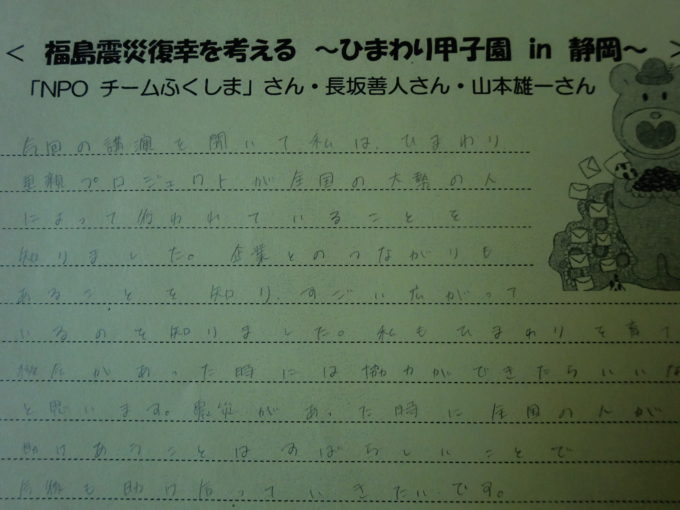 < 福島震災復幸を考える ~ひまわり甲子園 in 静岡~ >
「NPO チームふくしま」さん・長坂善人さん・山本雄一さん
今回の講演を聞いて私は、ひまわり
里親プロジェクトが全国の大勢の人
によって行われていることを
知りました。企業とのつながりも
あることを知り、すごい広がって
いるのを知りました。私もひまわりを育て
機会があった時には協力ができたらいいな
と思います。震災があった時に全国の人が
助けあうことはすばらしいことで
今後も助け合っていきたいです。